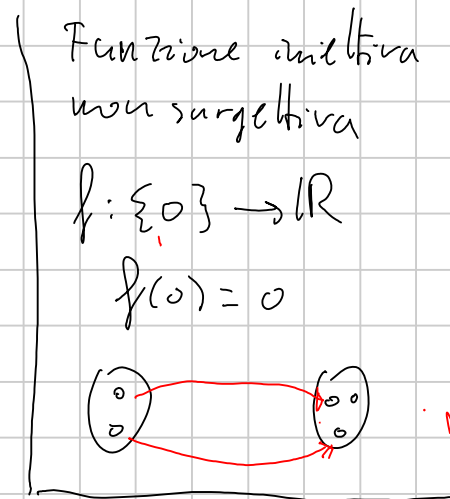 Funzione iniettiva
non surgettiva
f : {0} → ℝ
f(0) = 0